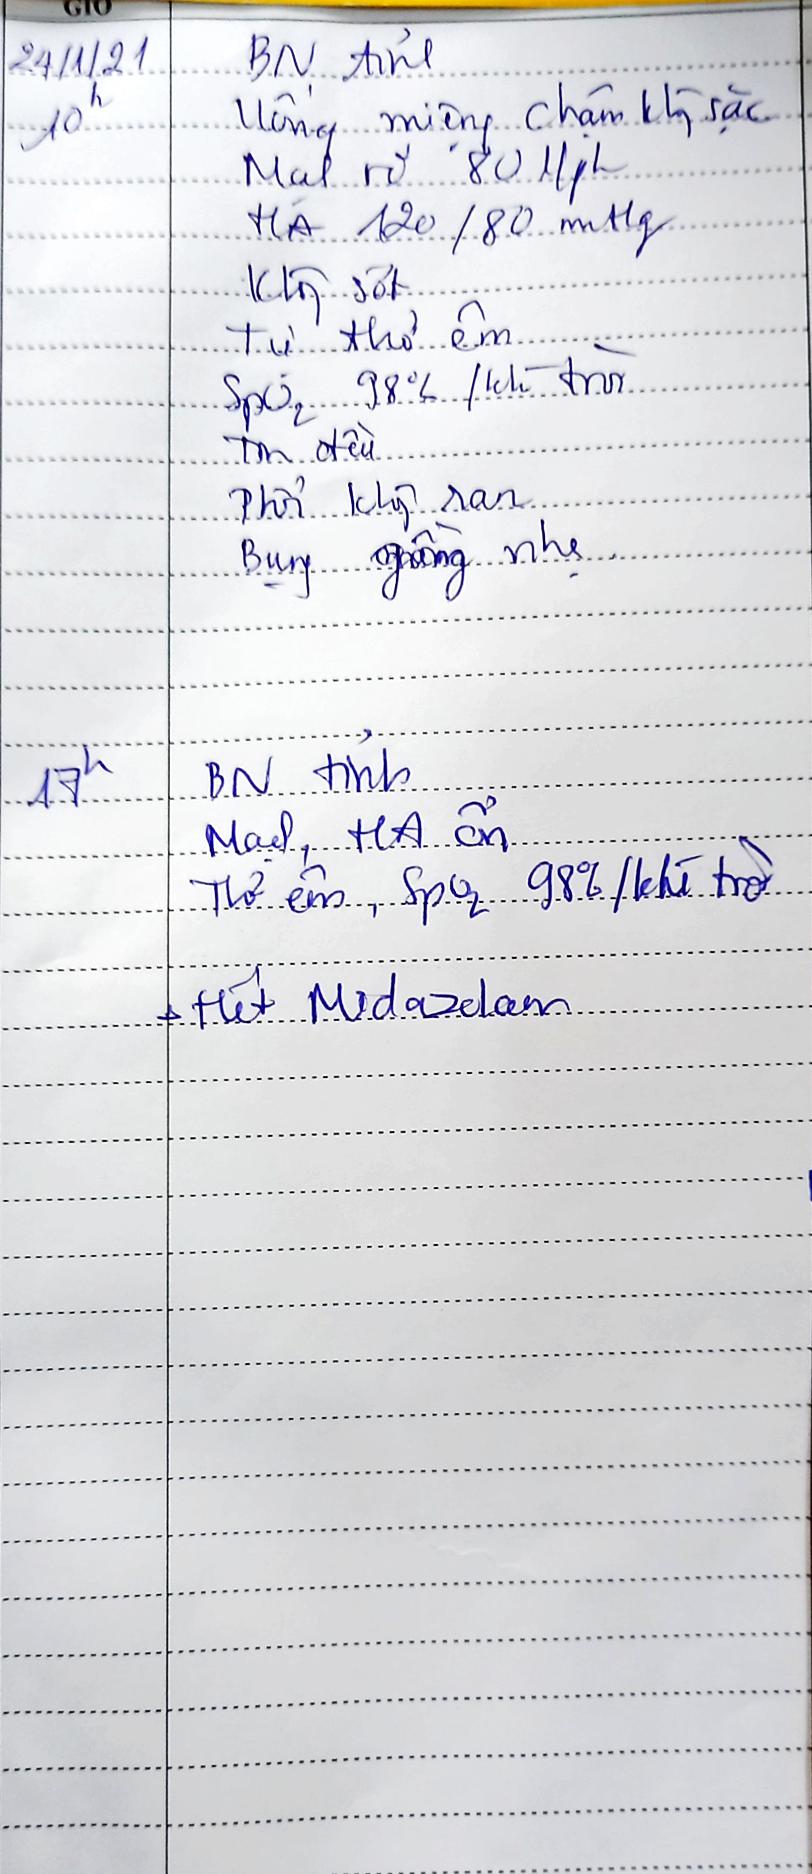 GIỜ
24/1/21 BN tỉnh
10h Uống miệng chậm khg sặc
Mạch rõ 80 l/ph
HA 120/80 mmHg
Khg sốt
Tự thở êm
SpO2 98% /khí trời
Tim đều
Phổi khg ran
Bụng nhẹ.
17h BN tỉnh
Mạch, HA ổn
Thở êm, SpO2 98% /khí trời
+ Hết Midazolam